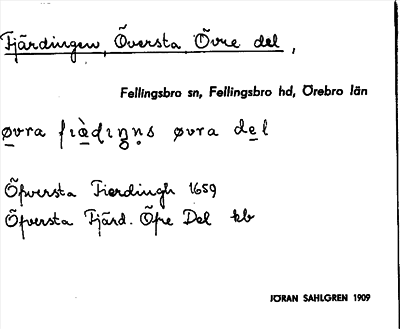 Fjärdingen, Översta Övre del,
Fellingsbro sn, Fellingsbro hd, Örebro län
øvra fıàdıŋŋs øvra del
Öfwersta Fierdingh 1659
Öfversta Fjärd. Öfre Del kb
JÖRAN SAHLGREN 1909